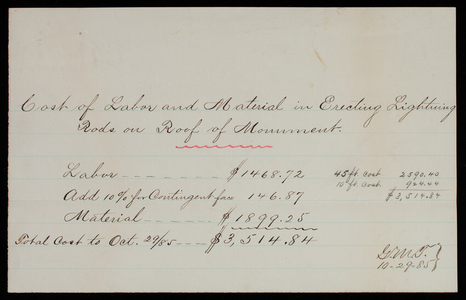 Cost of Labor and Material in Erecting Lightning
Rods on Roof of Monument.
Labor $1468.72
Add 10% for Contingent fund 146.87
Material $1899.25
Total Cost to Oct. 29/85 $3,514.84
45 ft. Cost 2590.40
10 ft Cost. 924.44
$3,514.84
10-29-85